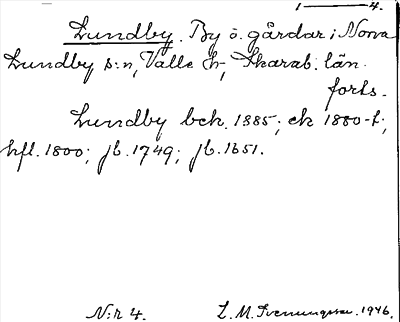 1 — 4.
Lundby. By o. gårdar i Norra
Lundby s:n, Valle h., Skarab. län.
forts.
Lundby bck. 1885; ek 1880-t;
hfl. 1800; jb. 1749; jb. 1651.
N:r 4. L. M. Svenungsson. 1946.